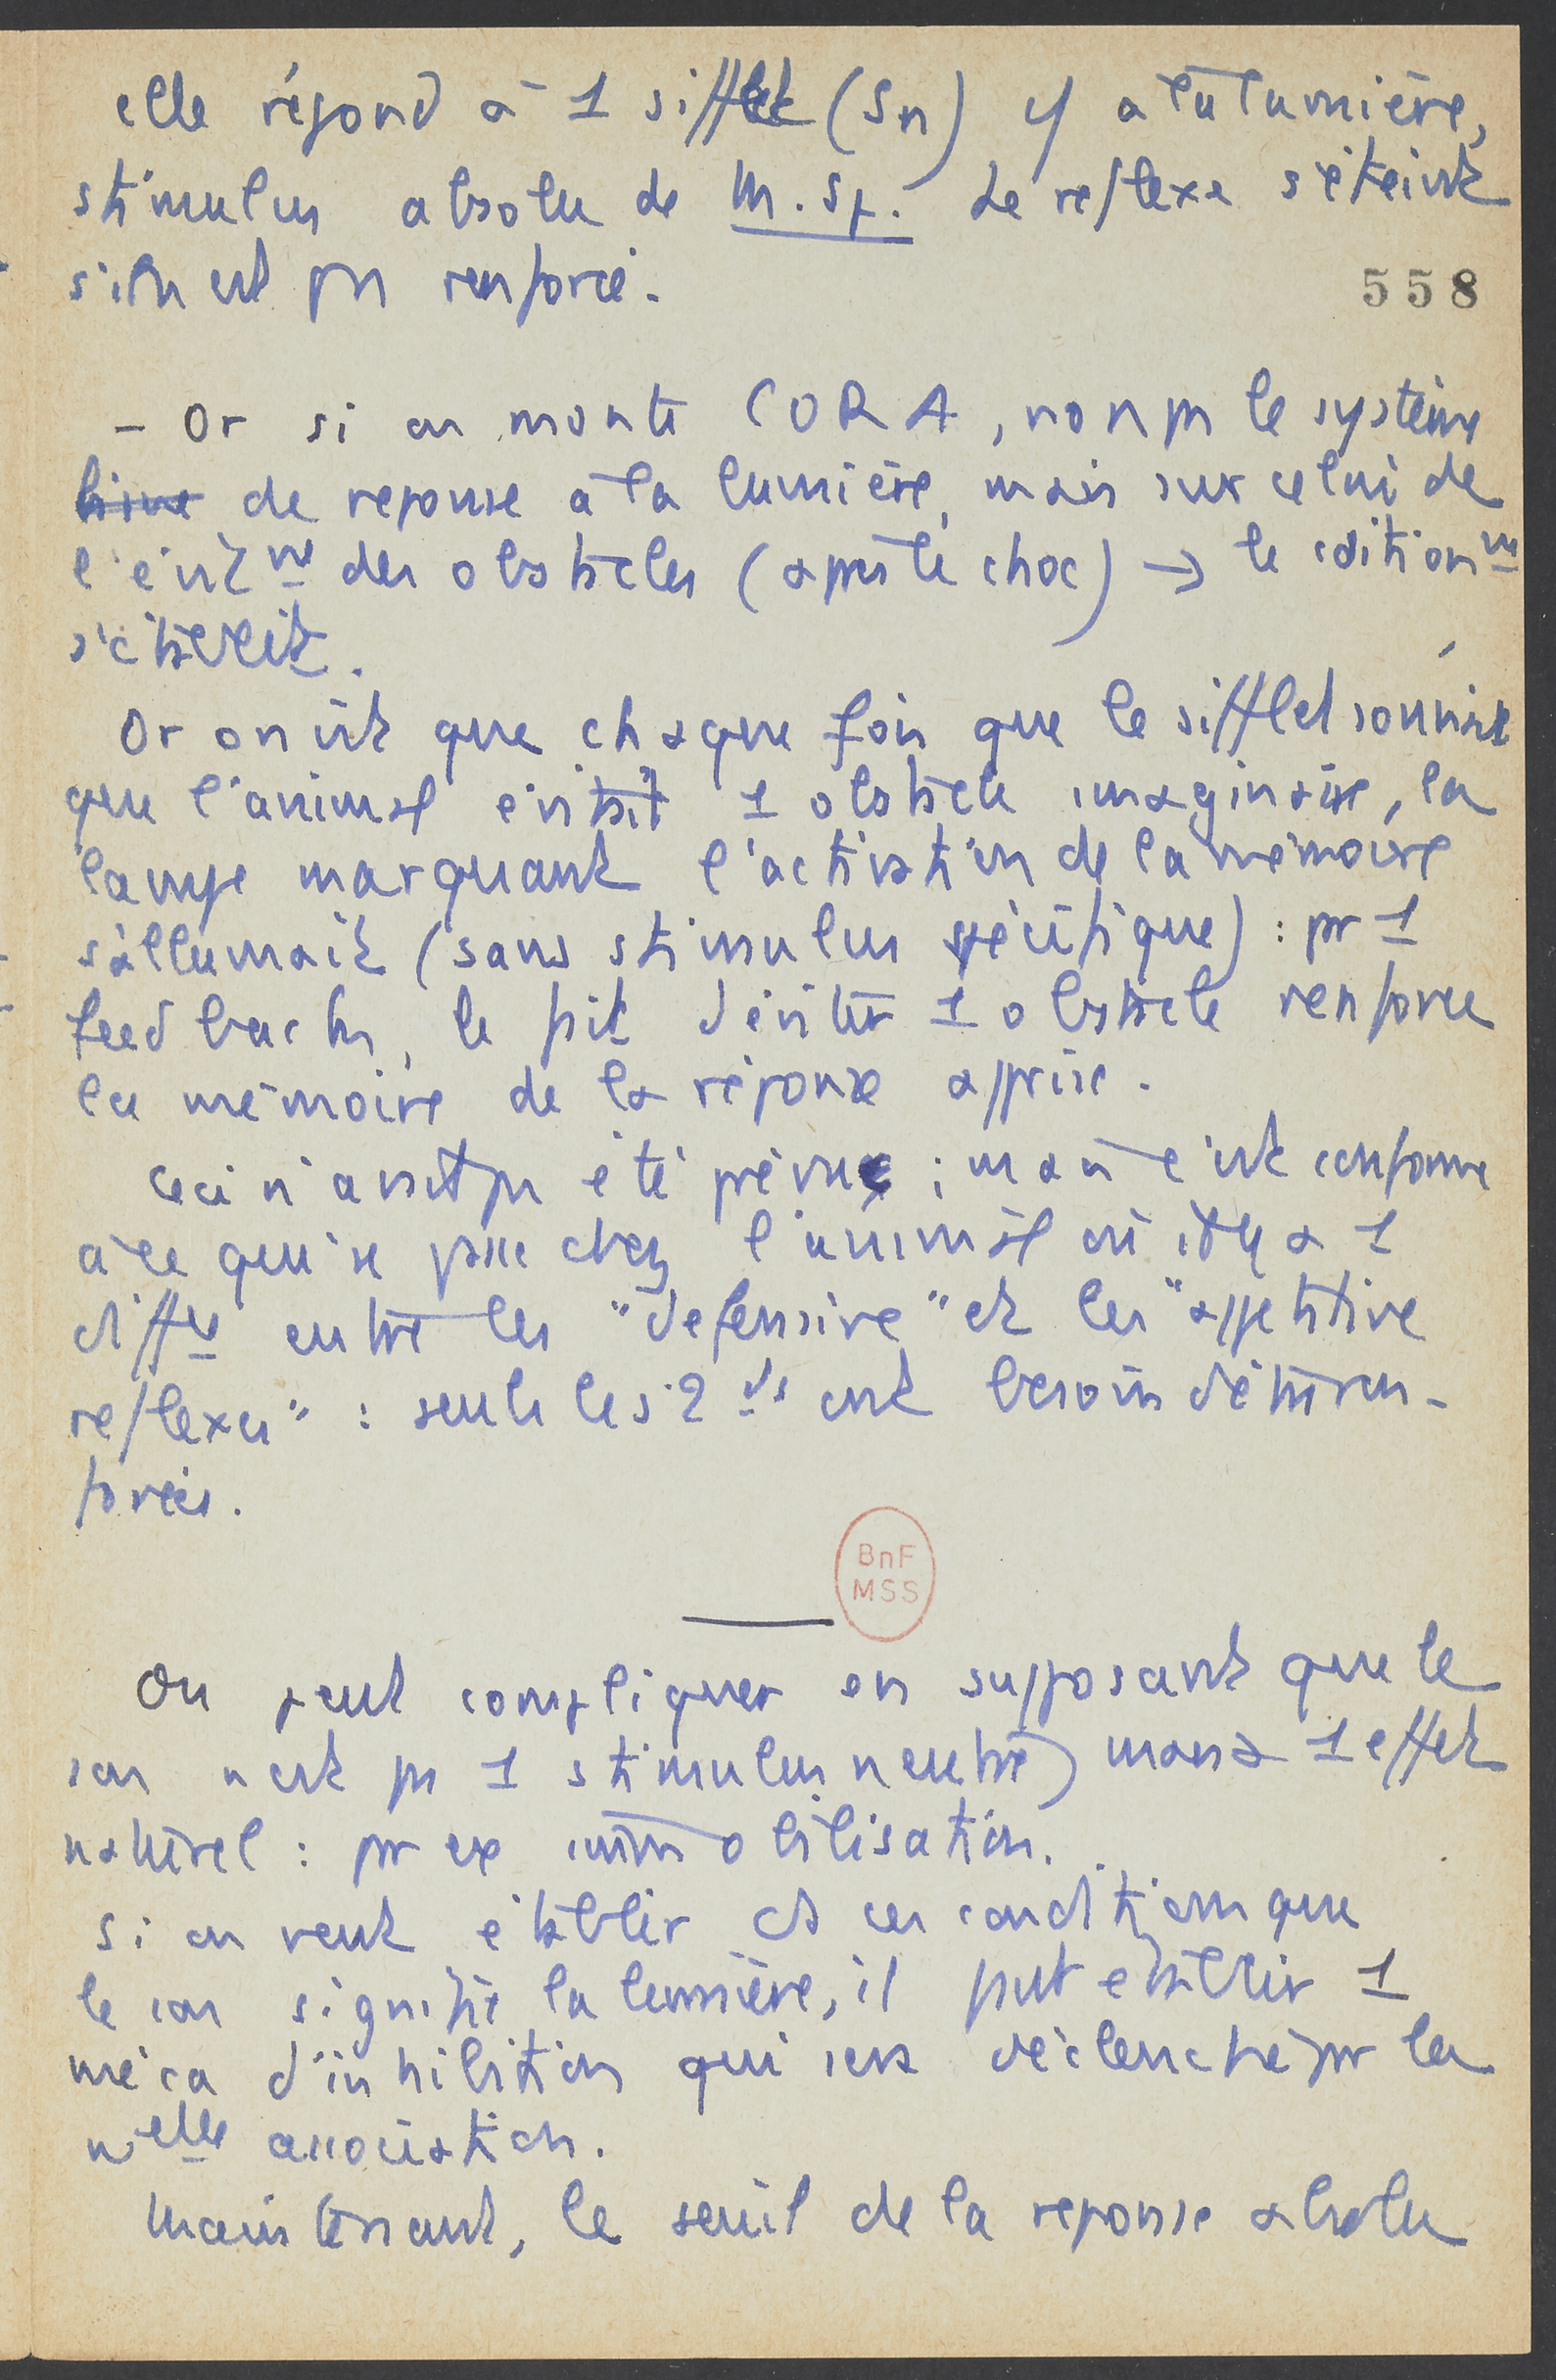 elle répond à 1 sifflet (Sn) cf à la lumière,
stimulus absolu de M. Sp. Le reflexe s'éteint
s'il n'est pas renforcé.
558
- Or si on monte CORA, non pas le système
de reponse à la lumière, mais sur celui de
l'évitnt des obstacles (après le choc) → le cditionnt
Or on vit que chaque fois que le sifflet sonnait
que l'animal évitait 1 obstacle imaginaire, la
lampe marquant l'activation de la mémoire
s'allumait (sans stimulus spécifique) : pr 1
feed back, le fait d'éviter 1 obstacle renforce
la mémoire de la réponse apprise.
Ceci n'avait pas été prévu ; mais c'est conforme
à ce qui se passe chez l'animal où il y a 1
diffce entre les "defensive" et les "appetitive
reflexes" : seuls les 2ds ont besoin d'être ren-
forcés.
BnF
MSS
On peut compliquer en supposant que le
son n'est pas 1 stimulus neutre, mais a 1 effet
naturel : par ex immobilisation.
Si on veut établir ds ces conditions que
le son signifie la lumière, il faut établir 1
méca d'inhibition qui sera déclenché par la
nelle association.
Maintenant, le seuil de la reponse absolu